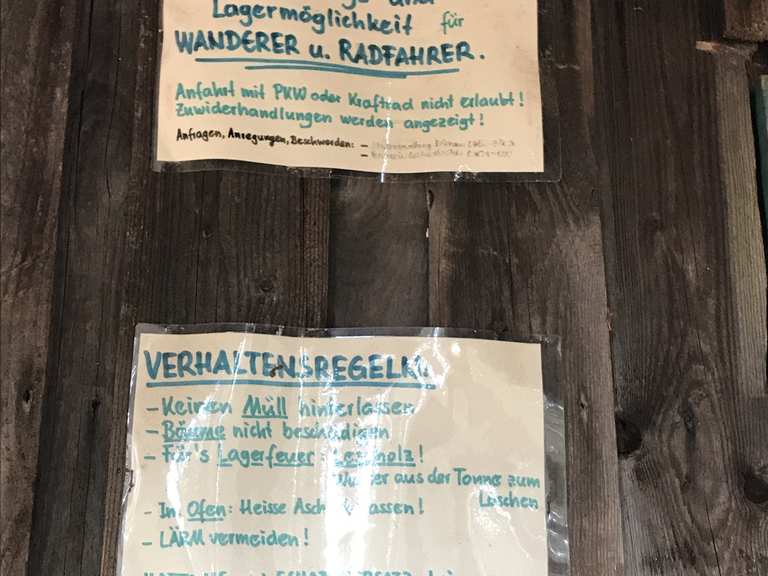 und
Lagermöglichkeit für
WANDERER u. RADFAHRER.
Anfahrt mit PKW oder Kraftrad nicht erlaubt!
Zuwiderhandlungen werden angezeigt!
Anfragen, Anregungen, Beschwerden: -
-
VERHALTENSREGELN:
- Keinen Müll hinterlassen
- Bäume nicht beschädigen
- Für's Lagerfeuer: Leseholz!
Wasser aus der Tonne zum
Löschen
- Im Ofen: Heisse Asche lassen!
- LÄRM vermeiden!